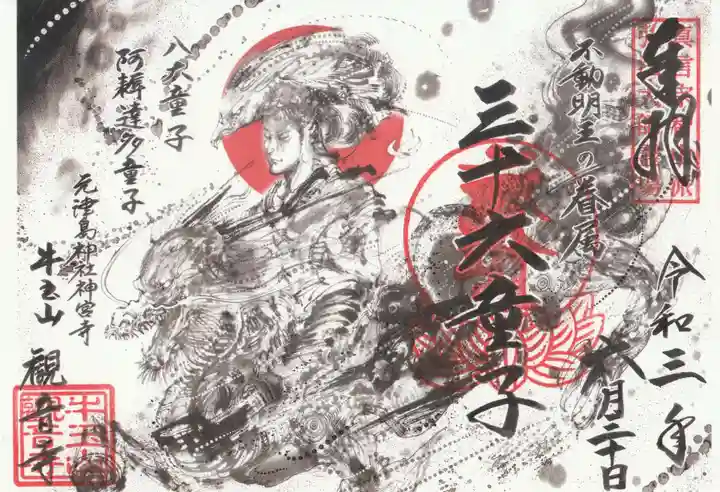 奉拝
令和三年
六月二十日
不動明王の眷属
三十六童子
八大童子
阿耨達多童子
元津島神社神宮寺
牛玉山
観音寺